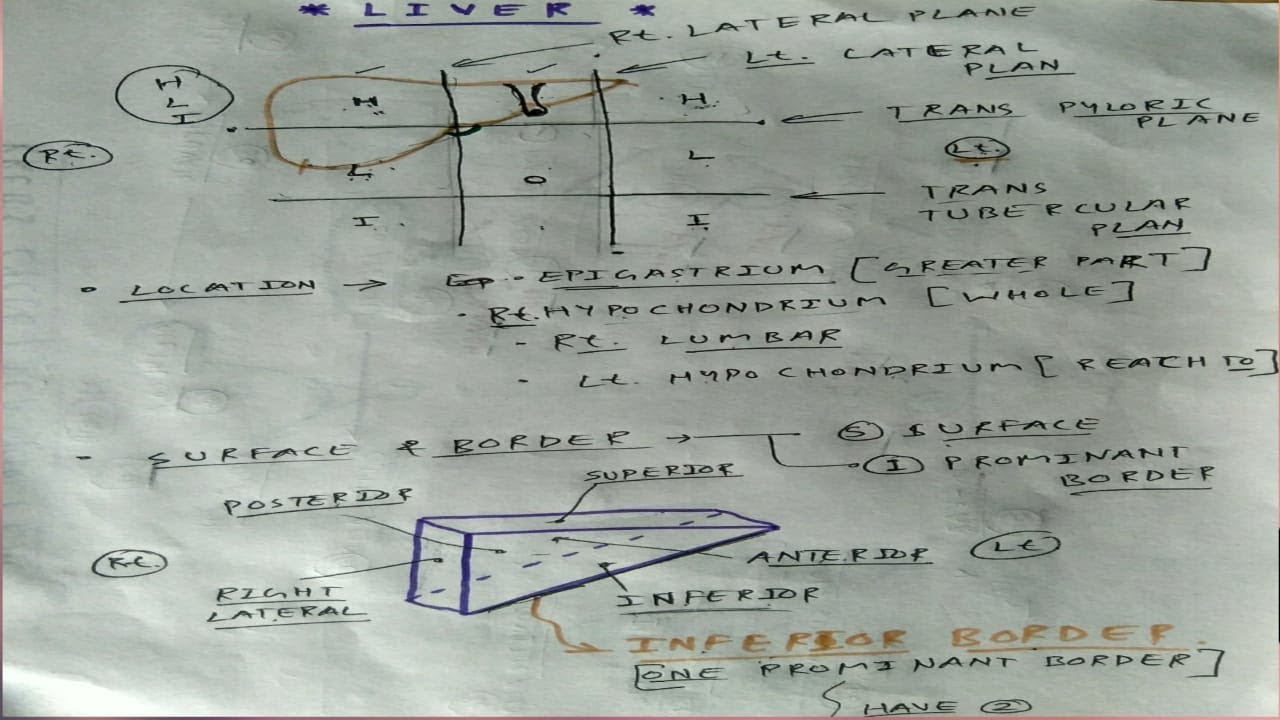 * LIVER *
Rt. LATERAL PLANE
Lt. LATERAL
PLAN
H
L
I
H
H
TRANS PYLORIC
PLANE
Rt.
Lt.
L
O
L
TRANS
TUBERCULAR
PLAN
I
I
• LOCATION → • EPIGASTRIUM [GREATER PART]
• Rt. HYPOCHONDRIUM [WHOLE]
- Rt. LUMBAR
• Lt. HYPOCHONDRIUM [REACH TO]
- SURFACE & BORDER → 5 SURFACE
1 PROMINANT
BORDER
SUPERIOR
POSTERIOR
Rt.
ANTERIOR
Lt
RIGHT
LATERAL
INFERIOR
INFERIOR BORDER.
[ONE PROMINANT BORDER]
HAVE 2